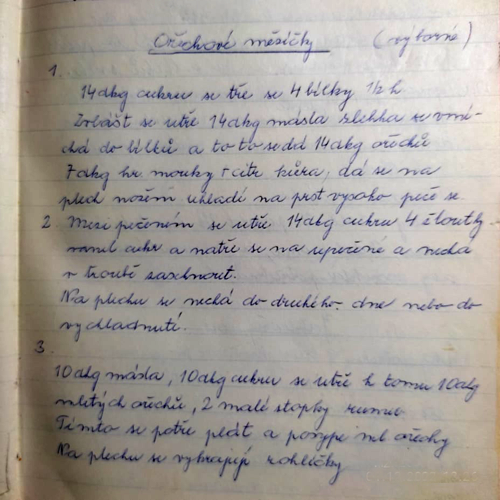 Ořechové měsíčky (výborné)
1.
14 dkg cukru se tře se 4 bílky 1/2 h
Zvlášť se utře 14 dkg másla zlehka se vmí-
chá do bílků a to to se dá 14 dkg ořechů
7 dkg hr mouky + citr kůra, dá se na
plech nožem uhladí na prst vysoko peče se.
2. Mezi pečením se utře 14 dkg cukru 4 žloutky
vanil cukr a natře se na upečené a nechá
v troubě zaschnout.
Na plechu se nechá do druhého. dne nebo do
vychladnutí.
3.
10 dkg másla, 10 dkg cukru se utře k tomu 10 dkg
mletých ořechů, 2 malé stopky rumu
Tímto se potře plát a posype ml ořechy
Na plechu se vykrajují rohlíčky